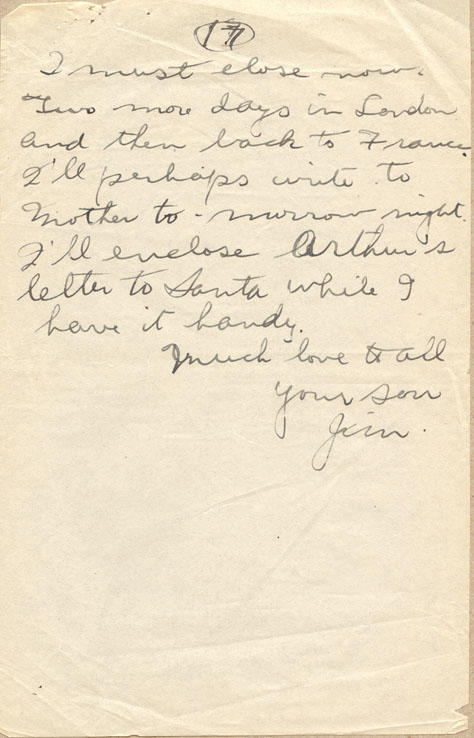 17
I must close now.
Two more days in London
and then back to France.
I'll perhaps write to
Mother to-morrow night.
I'll enclose Arthur's
letter to Santa while I
have it handy.
Much love to all
your son
Jim.